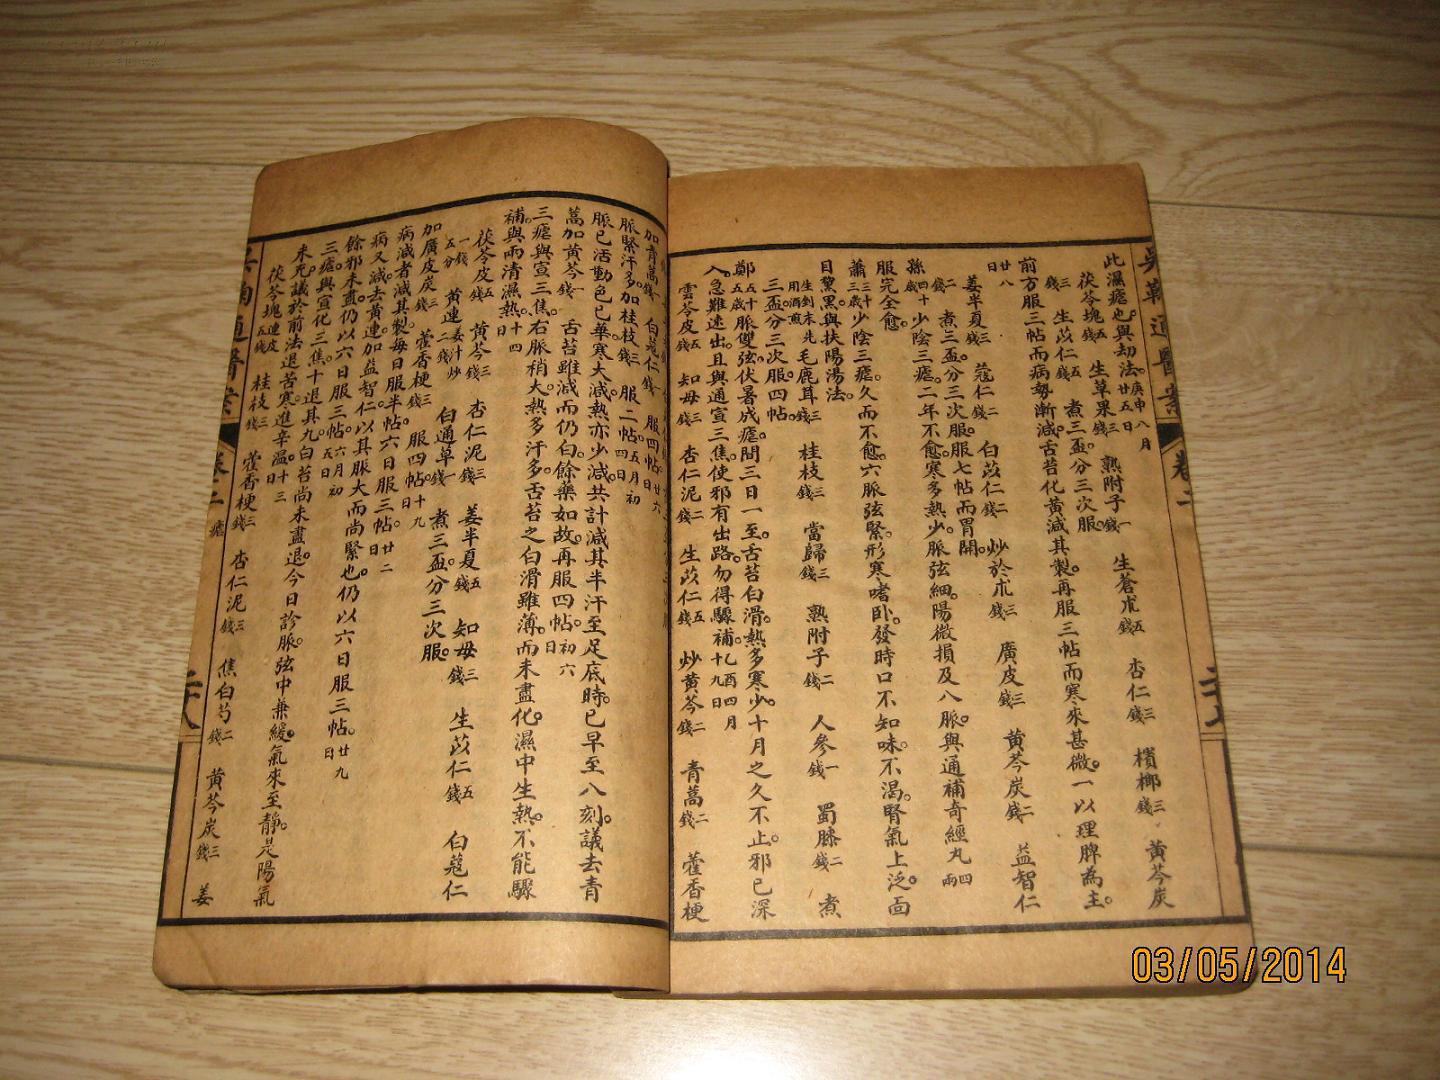 吳鞠通醫案 卷二
此濕瘧也與刼法庚申八月廿五日
茯苓塊五錢 生草果三錢 熟附子一錢 生蒼朮五錢 杏仁三錢 檳榔三錢 黃芩炭三錢 生苡仁五錢 煮三盃分三次服
前方服三帖而病勢漸減舌苔化黃減其製再服三帖而寒來甚微一以理脾為主廿八日
姜半夏三錢 蔻仁二錢 白苡仁二錢 炒於朮三錢 廣皮三錢 黃芩炭二錢 益智仁二錢 煮三盃分三次服服七帖而胃開
孫四十歲 少陰三瘧二年不愈寒多熱少脈弦細陽微損及八脈與通補奇經丸四兩服完全愈
蕭三十三歲 少陰三瘧久而不愈六脈弦緊形寒嗜卧發時口不知味不渴腎氣上泛面目黧黑與扶陽湯法
毛鹿茸三錢生剉末先用酒煎 桂枝三錢 當歸三錢 熟附子二錢 人參一錢 蜀膝二錢 煮三盃分三次服四帖
鄭五十五歲 脈雙弦伏暑成瘧間三日一至舌苔白滑熱多寒少十月之久不止邪已深入急難速出且與通宣三焦使邪有出路勿得驟補乙酉四月十九日
雲苓皮五錢 知母三錢 杏仁泥二錢 生苡仁五錢 炒黃芩二錢 青蒿二錢 藿香梗
加青蒿一錢 白蔻仁一錢 服四帖廿六日
脈緊汗多加桂枝三錢 服二帖五月初四日
脈已活動色已華寒大減熱亦少減共計減其半汗至足底時已早至八刻議去青蒿加黃芩一錢 舌苔雖減而仍白餘藥如故再服四帖初六日
三瘧與宣三焦右脈稍大熱多汗多舌苔之白滑雖薄而未盡化濕中生熱不能驟補與兩清濕熱十四日
茯苓皮五錢 黃芩三錢 杏仁泥三錢 姜半夏五錢 知母三錢 生苡仁五錢 白蔻仁一錢五分 黃連姜汁炒二錢 白通草一錢 煮三盃分三次服
加廣皮炭三錢 藿香梗三錢 服四帖十九日
病減者減其製每日服半帖六日服三帖廿二日
病又減去黃連加益智仁以其脈大而尚緊也仍以六日服三帖廿九日
餘邪未盡仍以六日服三帖六月初五日
三瘧與宣化三焦十退其九白苔尚未盡退今日診脈弦中兼緩氣來至靜是陽氣未充議於前法退苦寒進辛溫十三日
茯苓塊連皮五錢 桂枝三錢 藿香梗三錢 杏仁泥三錢 焦白芍二錢 黃芩炭三錢 姜
吳鞠通醫案 卷二 瘧 二十八
03/05/2014